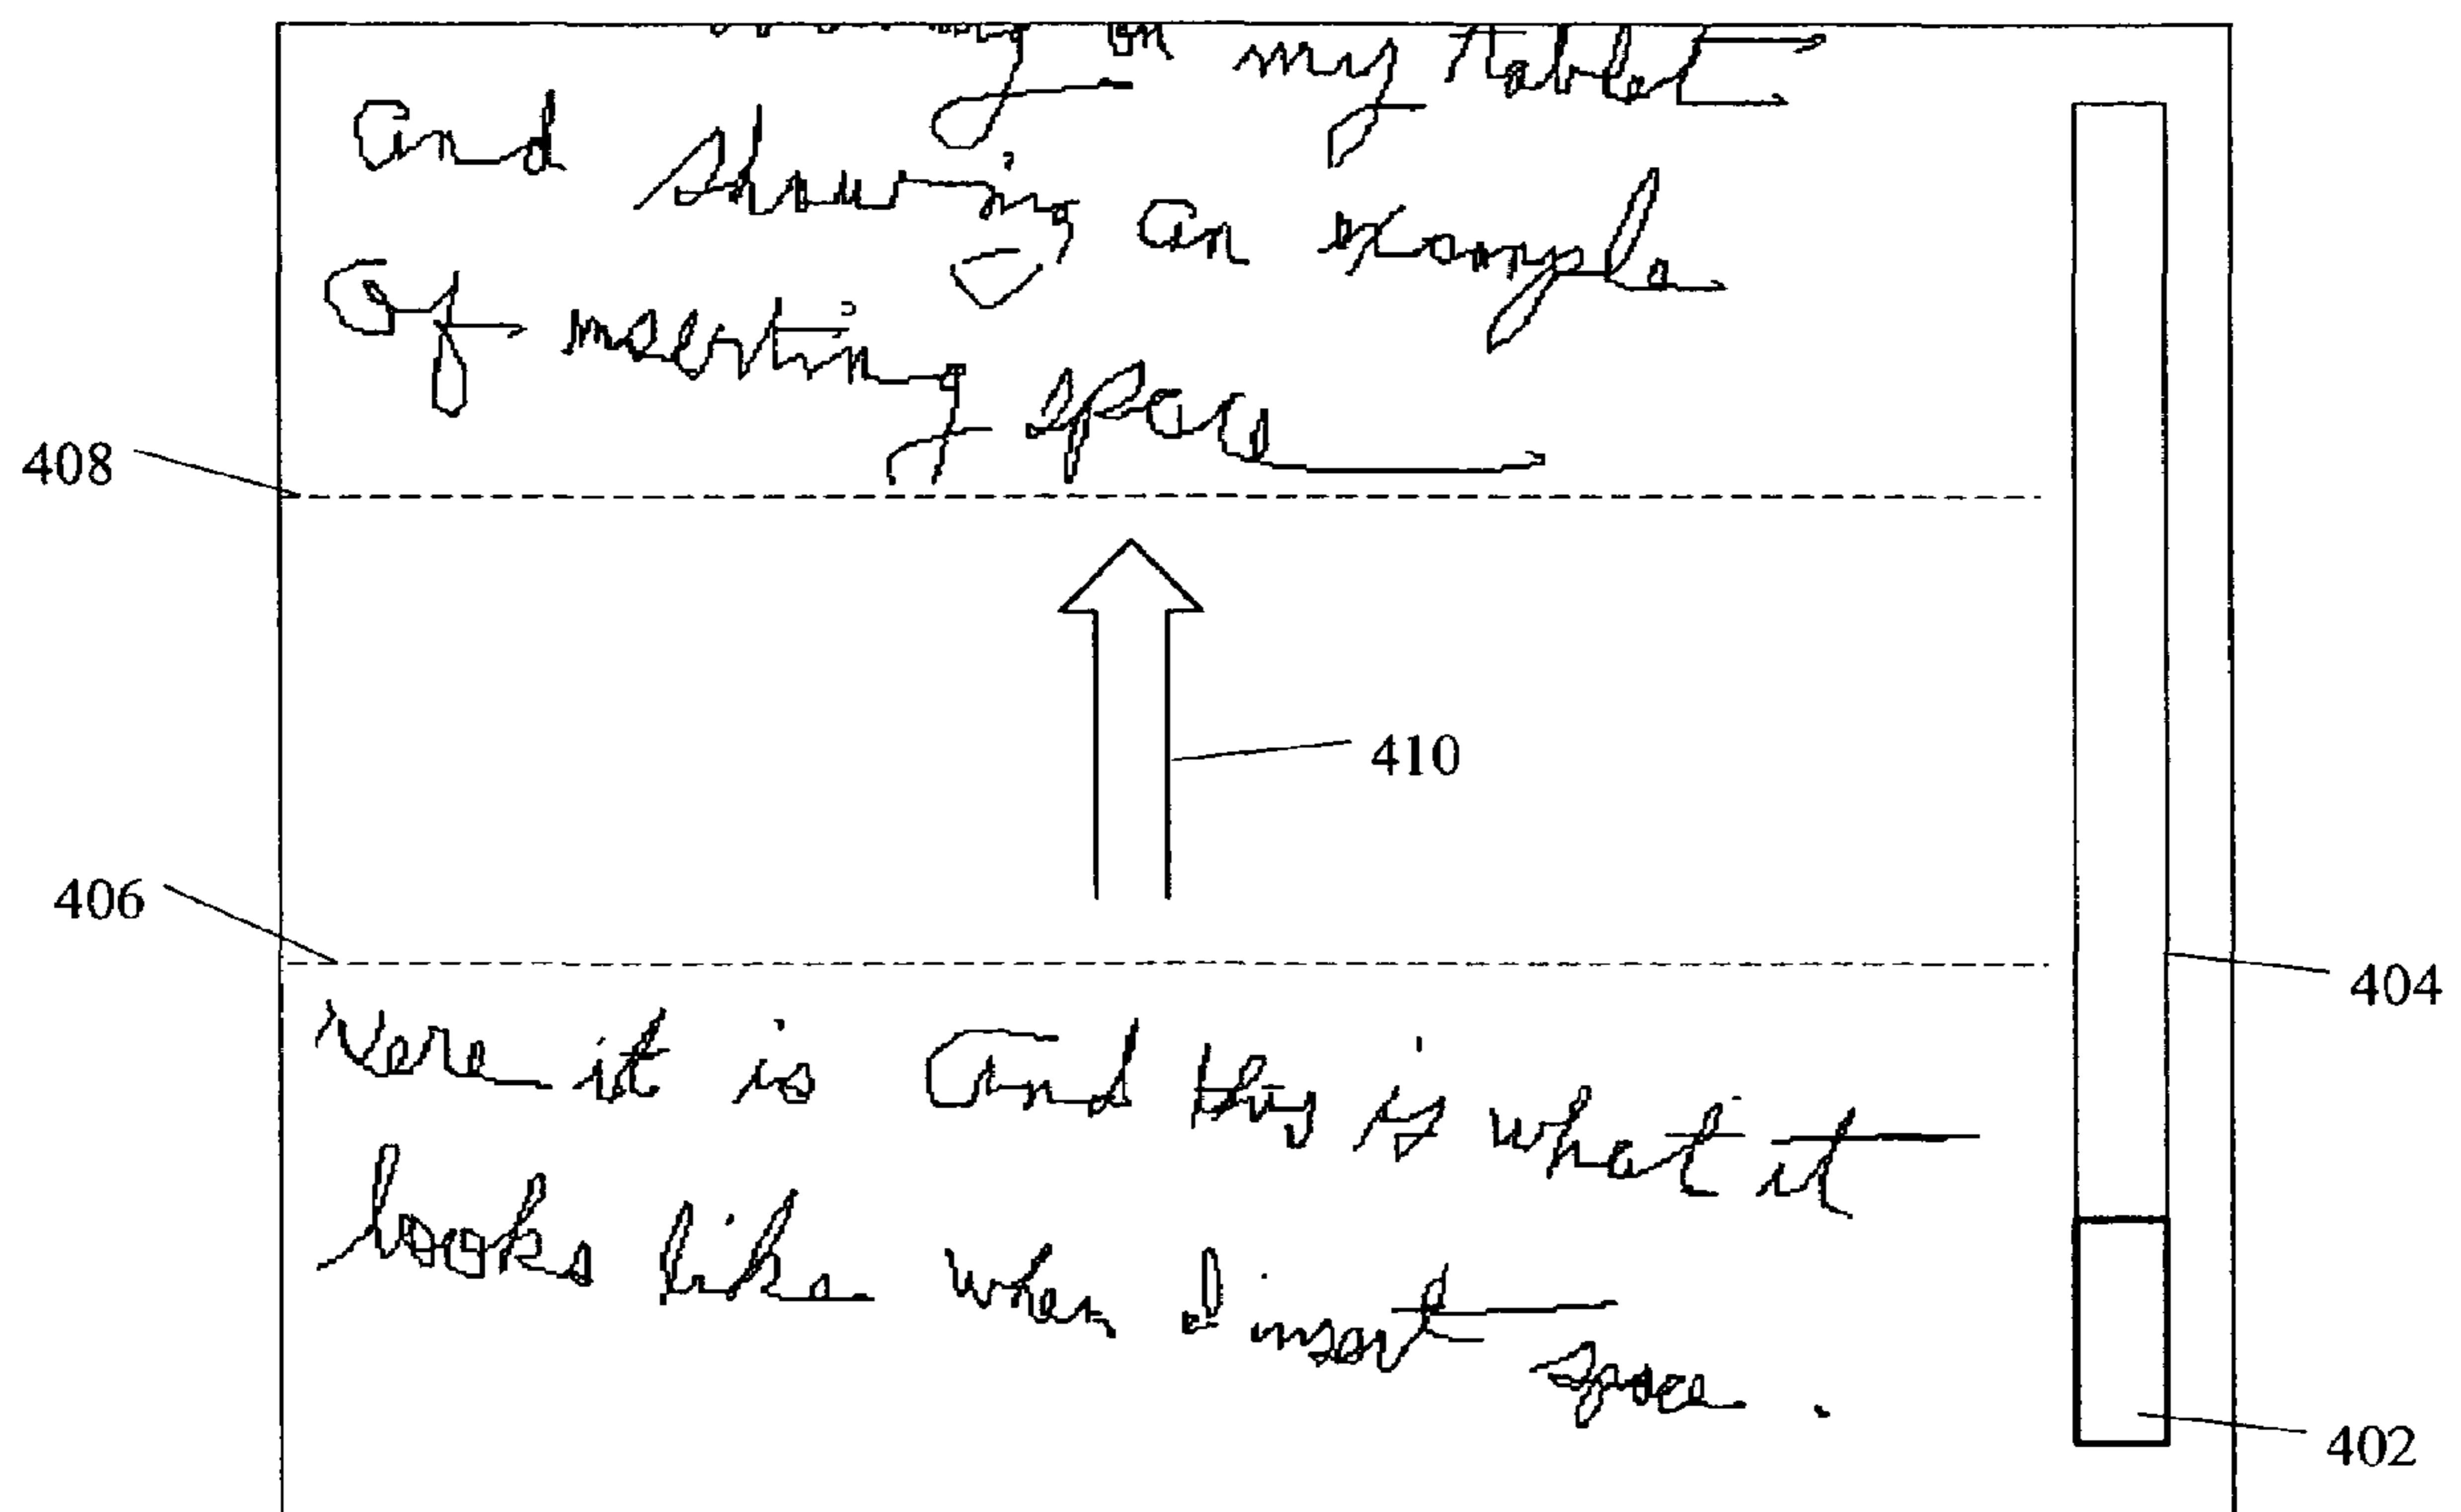 my tablet
and showing an example
of inserting space
408
410
406
404
Here it is and this is what it
looks like when I insert space.
402